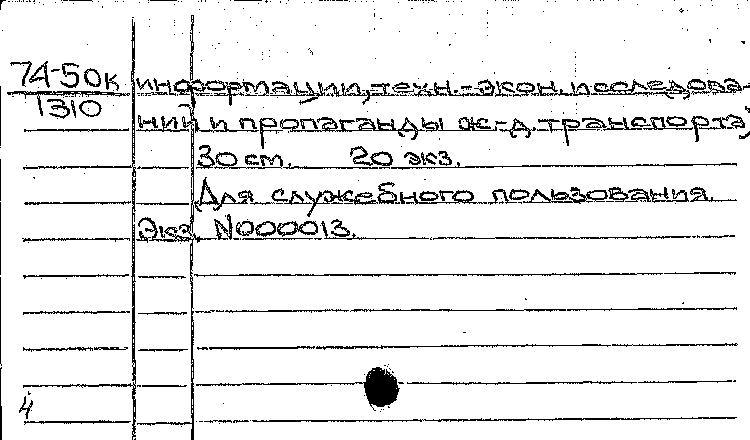 74-50к информации, техн.-экон. исследова-
1310
ний и пропаганды ж.-д. транспорта)
30 см. 20 экз.
Для служебного пользования.
Экз. N000013.
4